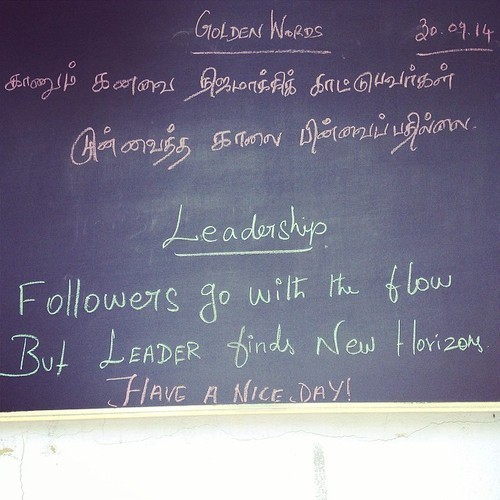 GOLDEN WORDS 30.09.14
காணும் கனவை நிஜமாக்கிக் காட்டுபவர்கள்
முன்வைத்த காலை பின்வைப்பதில்லை.
Leadership
FOLLOWERS go with the flow
But LEADER finds New Horizons.
HAVE A NICE DAY!